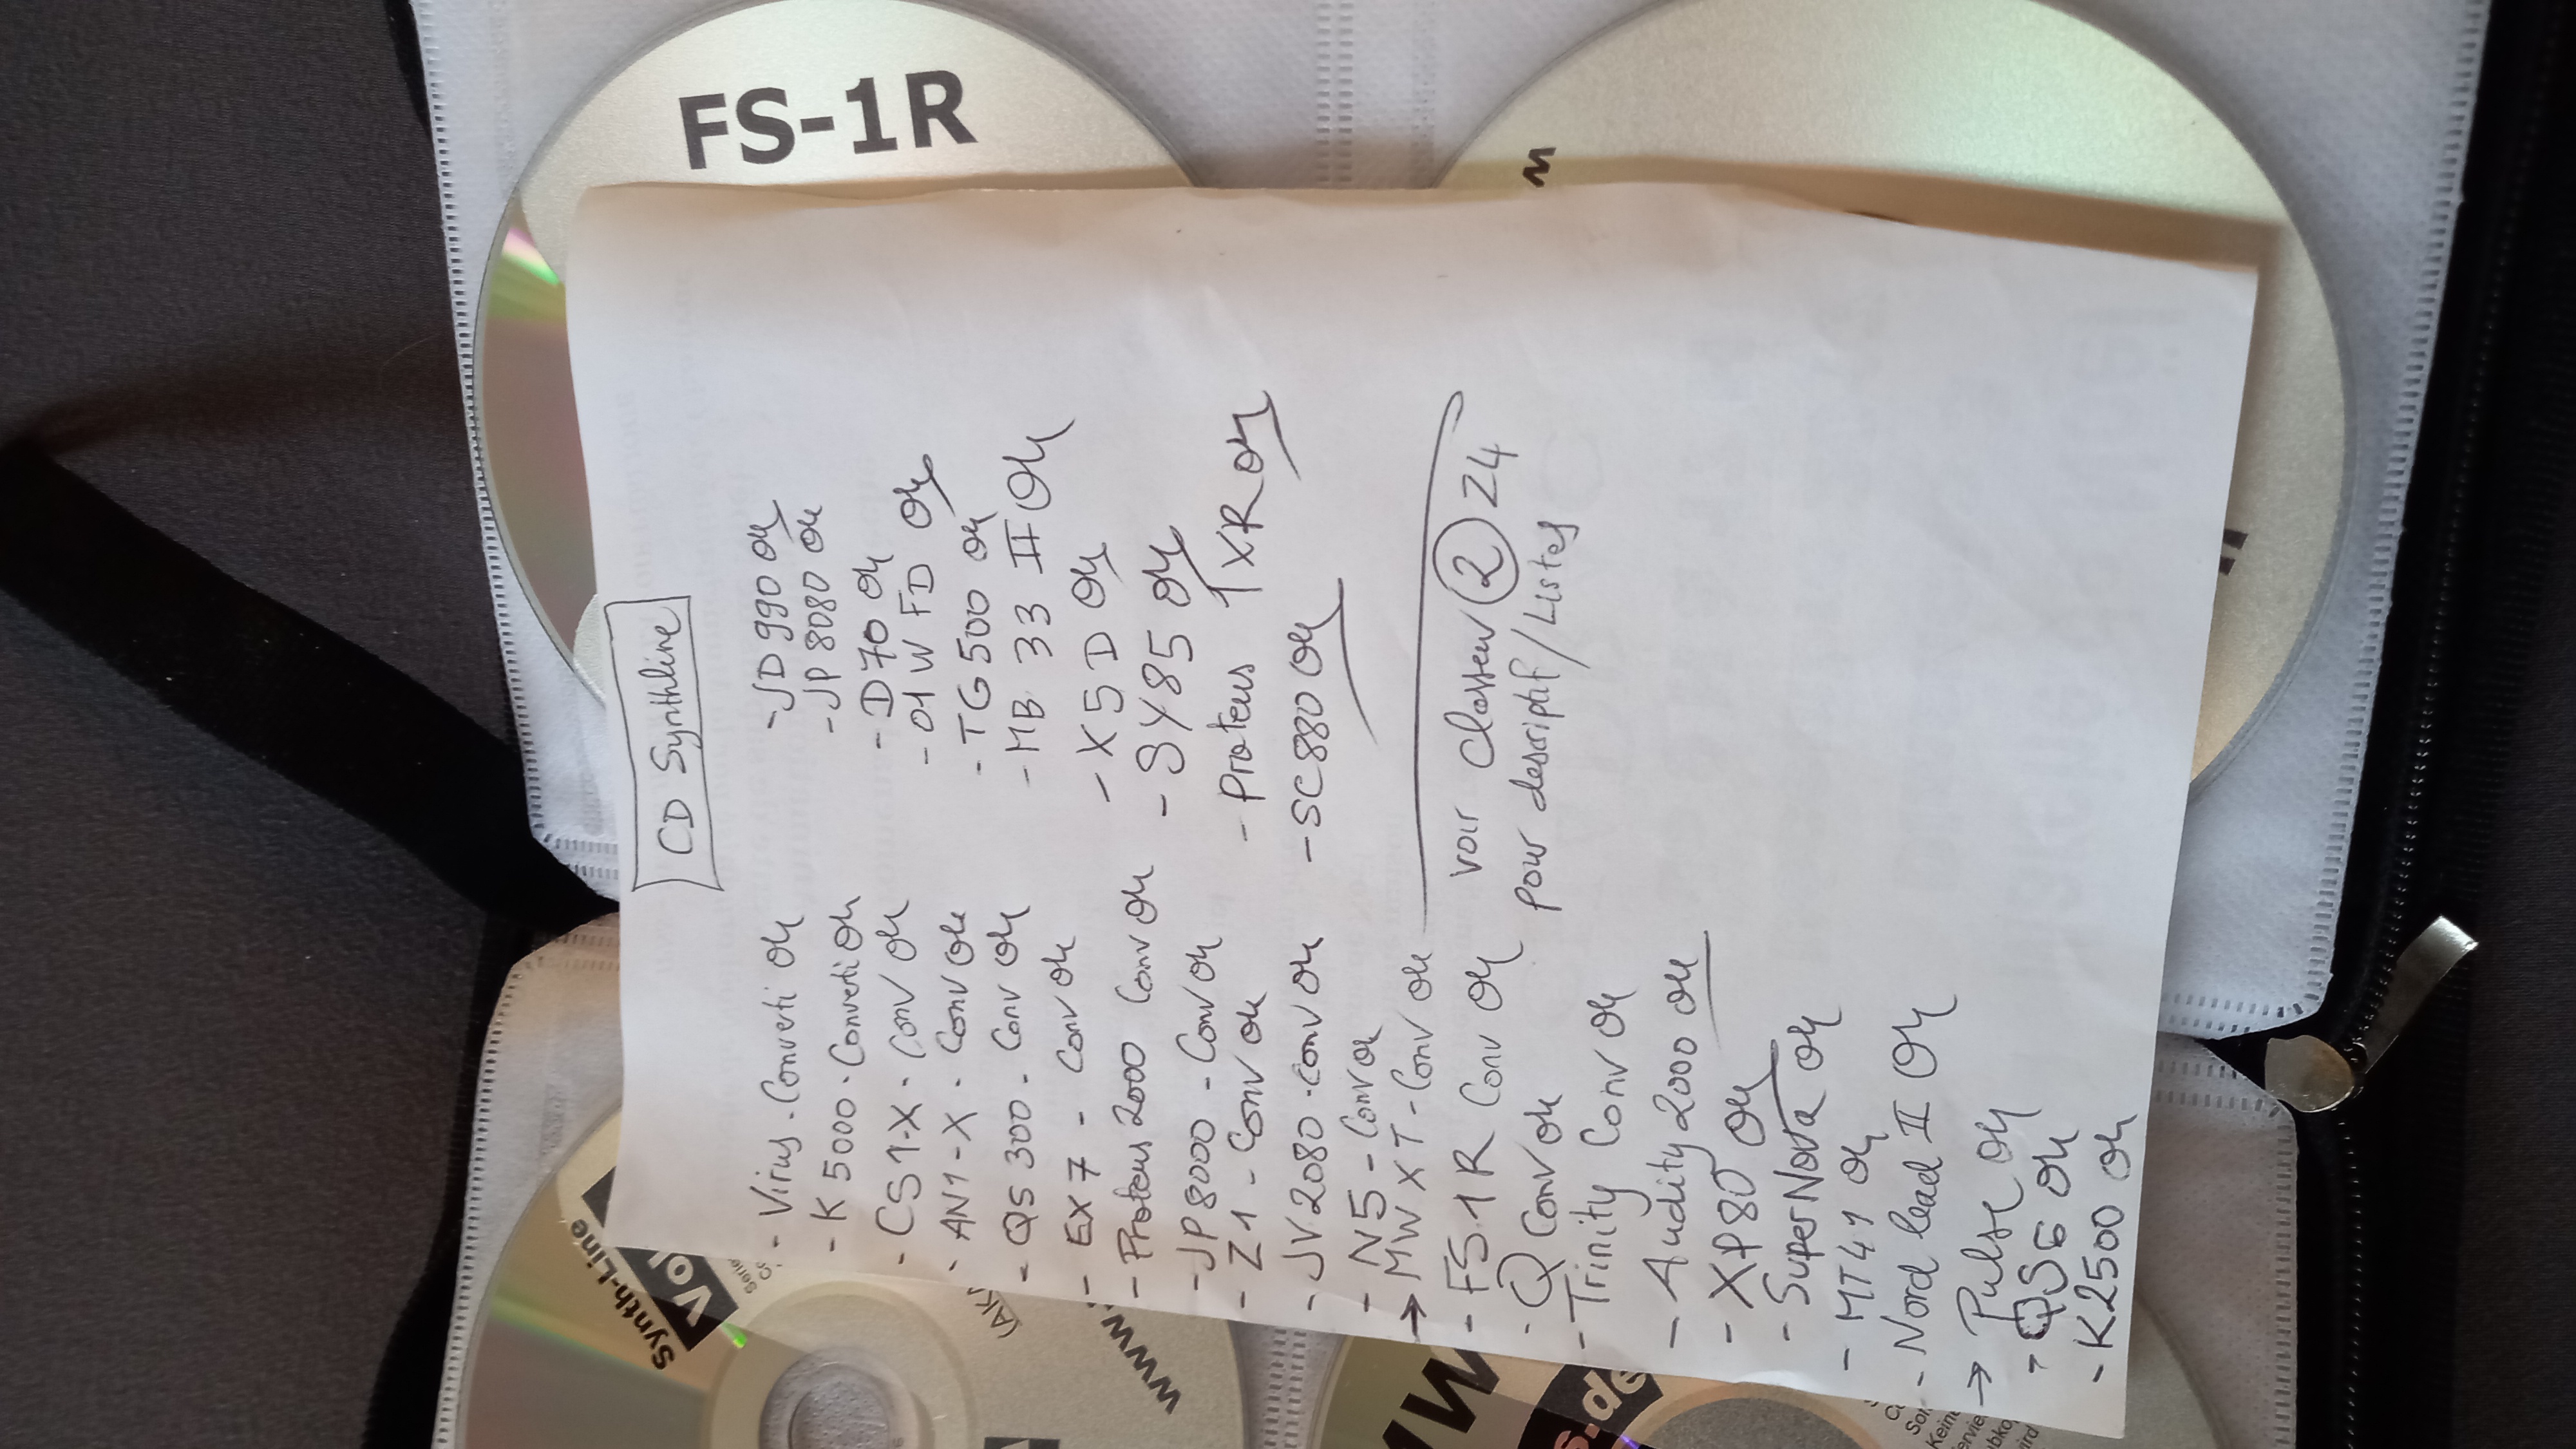 CD Synthline
- Virus - Converti ok
- K5000 - Converti ok
- CS1-X - Conv ok
- AN1-X - Conv ok
- QS 300 - Conv ok
- EX7 - Conv ok
- Proteus 2000 Conv ok
- JP8000 - Conv ok
- Z1 - Conv ok
- JV2080 - Conv ok
- N5 - Conv ok
→ MW XT - Conv ok
- FS1R Conv ok
- Q Conv ok
- Trinity Conv ok
- Audity 2000 ok
- XP80 ok
- SuperNova ok
- MT41 ok
- Nord lead II ok
→ Pulse ok
- QS6 ok
- K2500 ok
- JD990 ok
- JP8080 ok
- D70 ok
- 01W FD ok
- TG500 ok
- MB 33 II ok
- X5D ok
- SY85 ok
- Proteus 1XR ok
- SC880 ok
voir classeur 2 Z4
pour descriptif/Listes
FS-1R
Synth-Line
Vol
(AK
WWW.
W
s.de